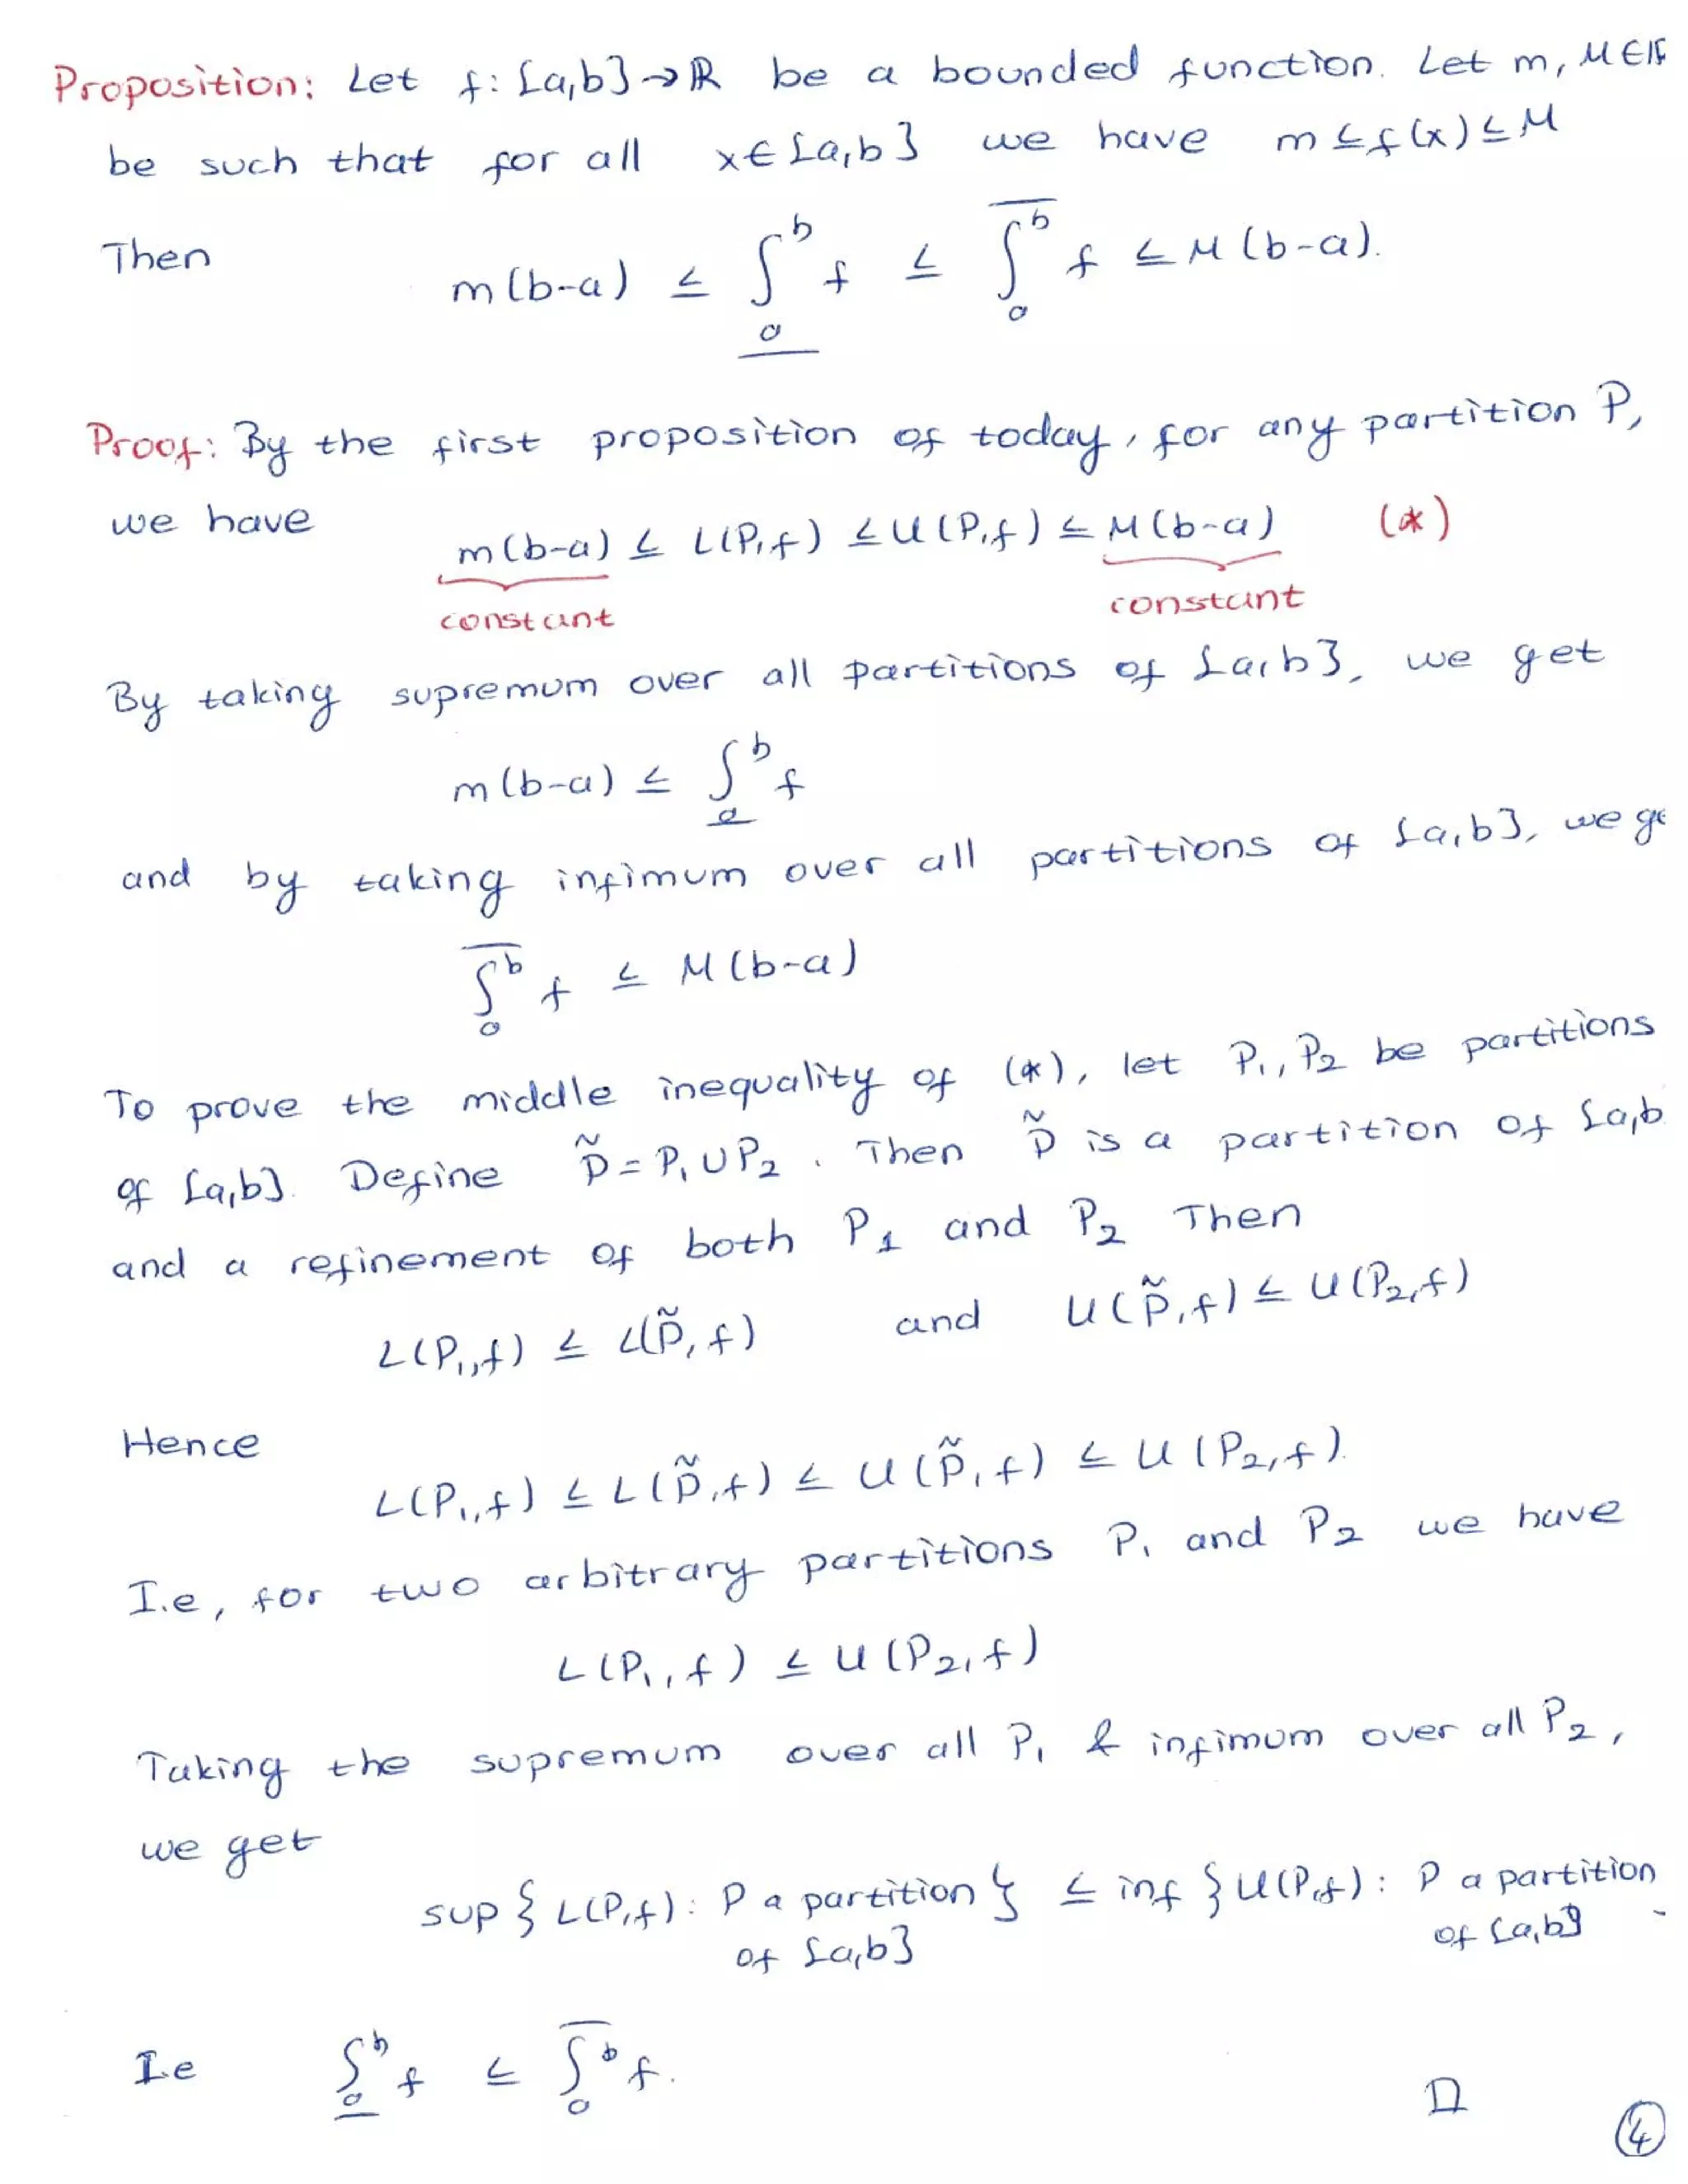 Proposition: Let f: [a,b] → ℝ be a bounded function. Let m, M ∈
be such that for all x ∈ [a,b] we have m ≤ f(x) ≤ M
Then m(b-a) ≤ \underline{∫_a}^b f ≤ \overline{∫^b}_a f ≤ M(b-a).
Proof: By the first proposition of today, for any partition P,
we have m(b-a) ≤ L(P,f) ≤ U(P,f) ≤ M(b-a) (*)
constant constant
By taking supremum over all partitions of [a,b], we get
m(b-a) ≤ \underline{∫_a}^b f
and by taking infimum over all partitions of [a,b], we ge
\overline{∫^b}_a f ≤ M(b-a)
To prove the middle inequality of (*), let P₁, P₂ be partitions
of [a,b]. Define P̃ = P₁ ∪ P₂. Then P̃ is a partition of [a,b
and a refinement of both P₁ and P₂ Then
L(P₁,f) ≤ L(P̃,f) and U(P̃,f) ≤ U(P₂,f)
Hence
L(P₁,f) ≤ L(P̃,f) ≤ U(P̃,f) ≤ U(P₂,f).
I.e, for two arbitrary partitions P₁ and P₂ we have
L(P₁,f) ≤ U(P₂,f)
Taking the supremum over all P₁ & infimum over all P₂,
we get
sup { L(P,f): P a partition } ≤ inf { U(P,f): P a partition
of [a,b] of [a,b]}
I.e \underline{∫_a}^b f ≤ \overline{∫^b}_a f. □
④